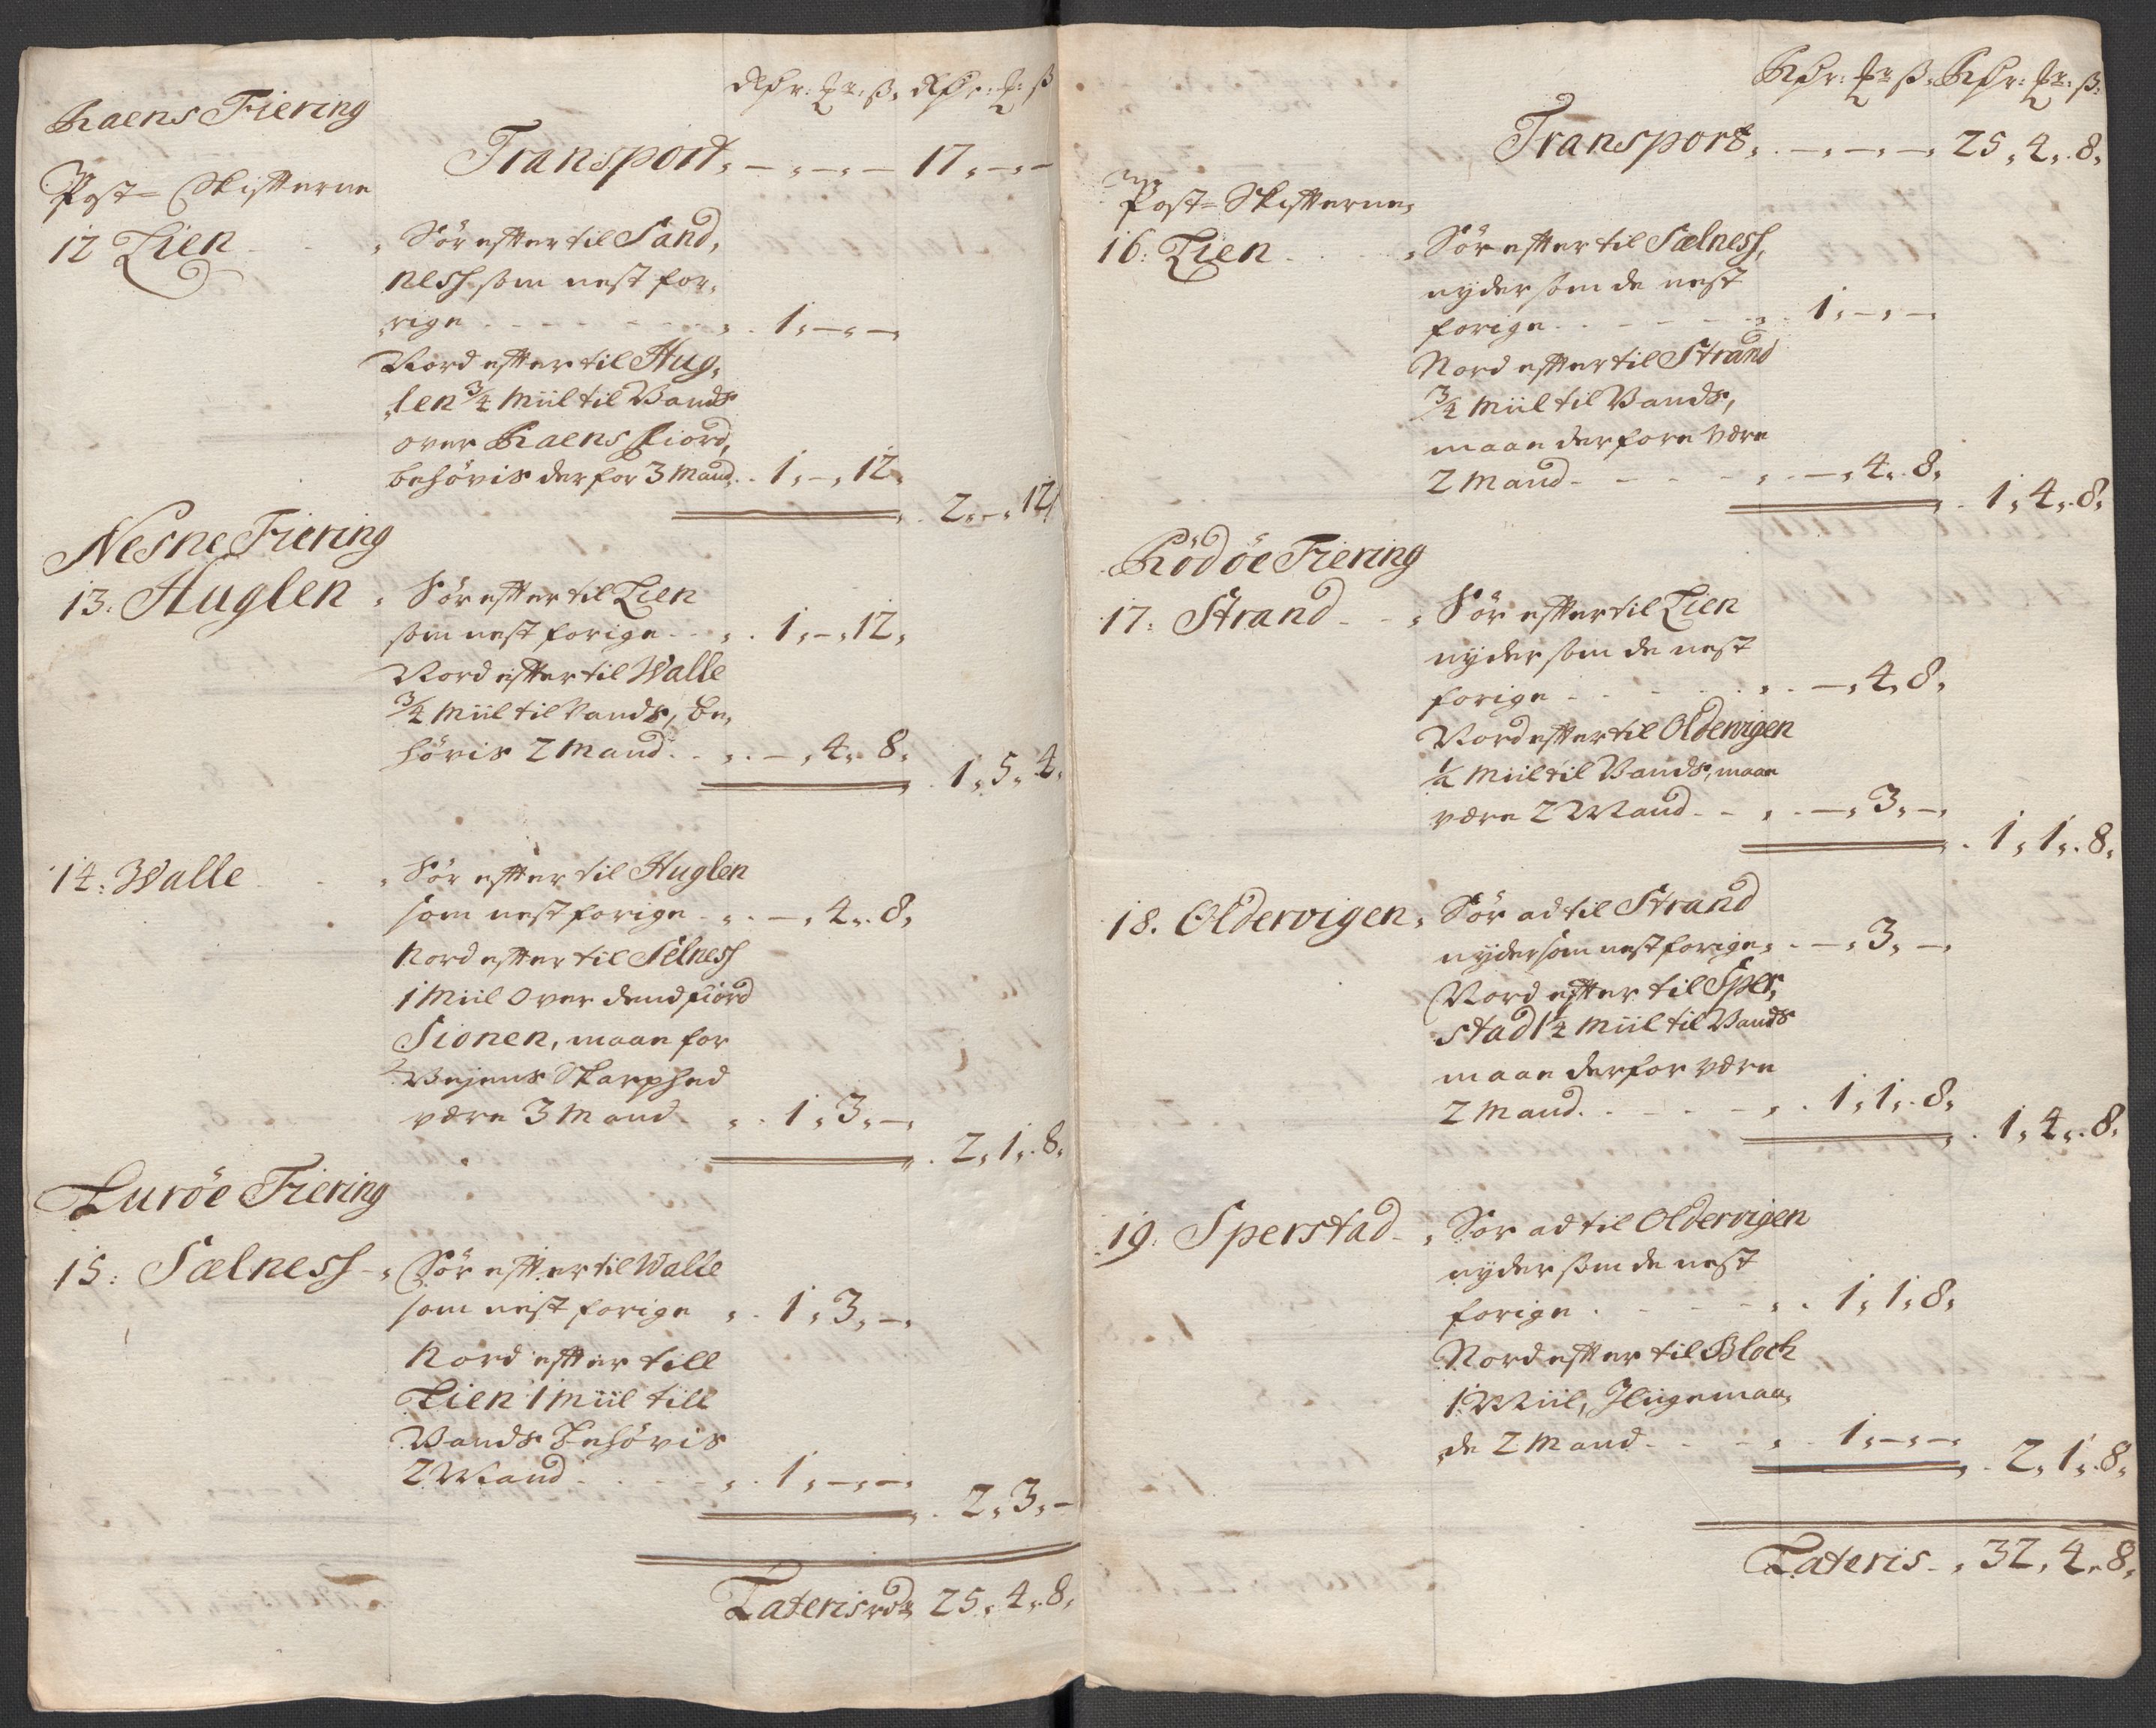 Rdr: ℔: ß. Rdr: ℔: ß
Raens Fiering
Transport. - . - . - 17. - . -
Post= Skifterne
12 Lien . Sør effter til Sand,
nesh som nest for,
rige . . 1. - . -
Nord effter til Hug,
len 3/4 Miil til Vands
over Raens fiord,
behøvis derfor 3 Mand . . 1. - . 12.
2. - . 12
Nesne Fiering
13. Huglen . Sør effter til Lien
som nest forige . . 1. - . 12.
Nord effter til Walle
3/4 Miil til Vands, be,
høvis 2 Mand . . - . 4. 8.
1. 5. 4.
14. Walle . Sør effter til Huglen
som nest forige . . - . 4. 8.
Nord effter til Selnesh
1 Miil over dend fiord
Sionen, maae for
Vejens Skarphed
være 3 Mand . . 1. 3. -
2. 1. 8.
Lurøe Fiering
15: Sælnesh . Sør effter til Walle
som nest forige . . 1. 3. -
Nord effter till
Lien 1 Miil till
Vands behøvis
2 Mand . . 1. - . -
2. 3. -
Lateris rdr 25. 4. 8.
Rdr: ℔ ß. Rdr: ℔: ß:
Transport. . - . - . - . 25. 4. 8.
Post= Skifterne.
16: Lien . Sør effter til Sælnesh,
nyder som de nest
forige . . 1. - . -
Nord effter til Strand
3/4 Miil til Vands,
maae derfore være
2 Mand . . - . 4. 8.
1. 4. 8.
Rødøe Fiering
17: Strand . Sør effter til Lien
nyder som de nest
forige . . - . 4. 8.
Nord effter til Oldervigen
1/2 Miil til Vands, maae
være 2 Mand . . - . 3. -
1. 1. 8.
18. Oldervigen. Sør ad til Strand
nyder som nest forige. . - . 3. -
Nord effter til Sper,
stad 1 1/4 Miil til Vands
maae derfor være
2 Mand . . 1. 1. 8.
1. 4. 8.
19. Sperstad . Sør ad til Oldervigen
nyder som de nest
forige . . 1. 1. 8.
Nord effter til Bloch
1 Miil, Jliigemaa,
de 2 Mand . . 1. - . -
2. 1. 8.
Lateris . 32. 4. 8.